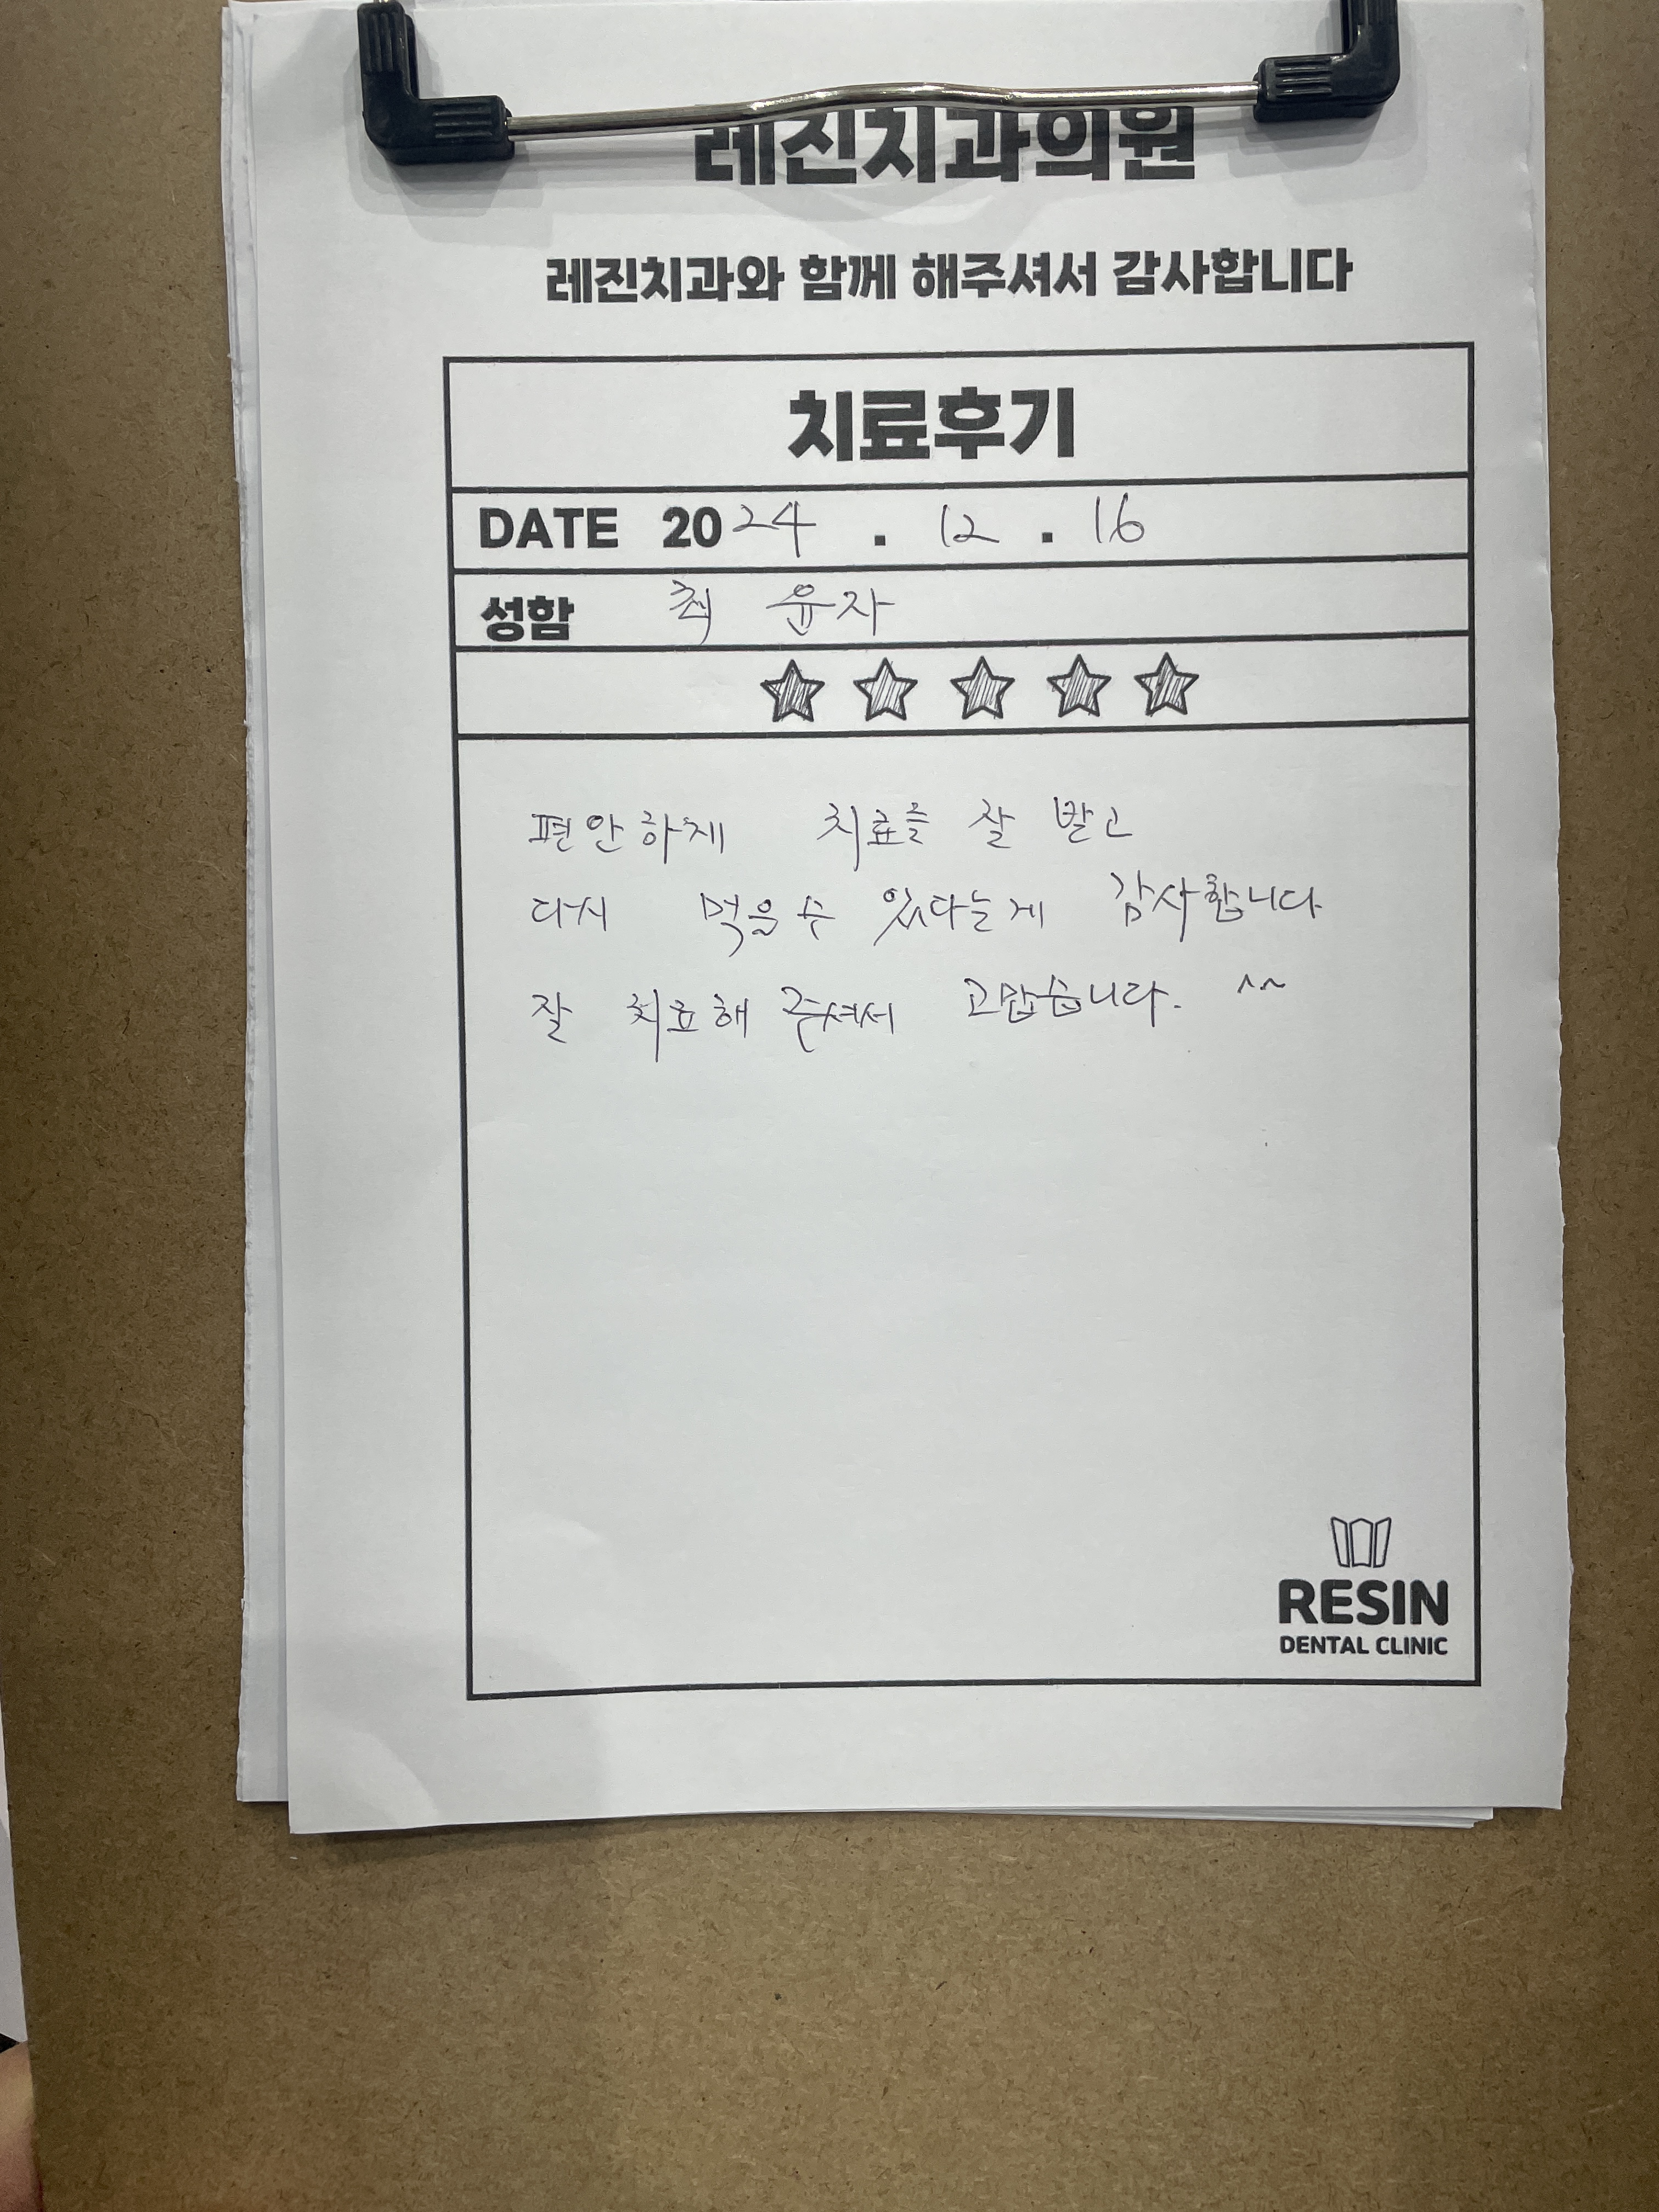 레진치과의원
레진치과와 함께 해주셔서 감사합니다
치료후기
DATE 2024 . 12 . 16
성함 최 윤자
편안하게 치료를 잘 받고
다시 먹을수 있다는게 감사합니다
잘 치료해 주셔서 고맙습니다. ^^
RESIN
DENTAL CLINIC